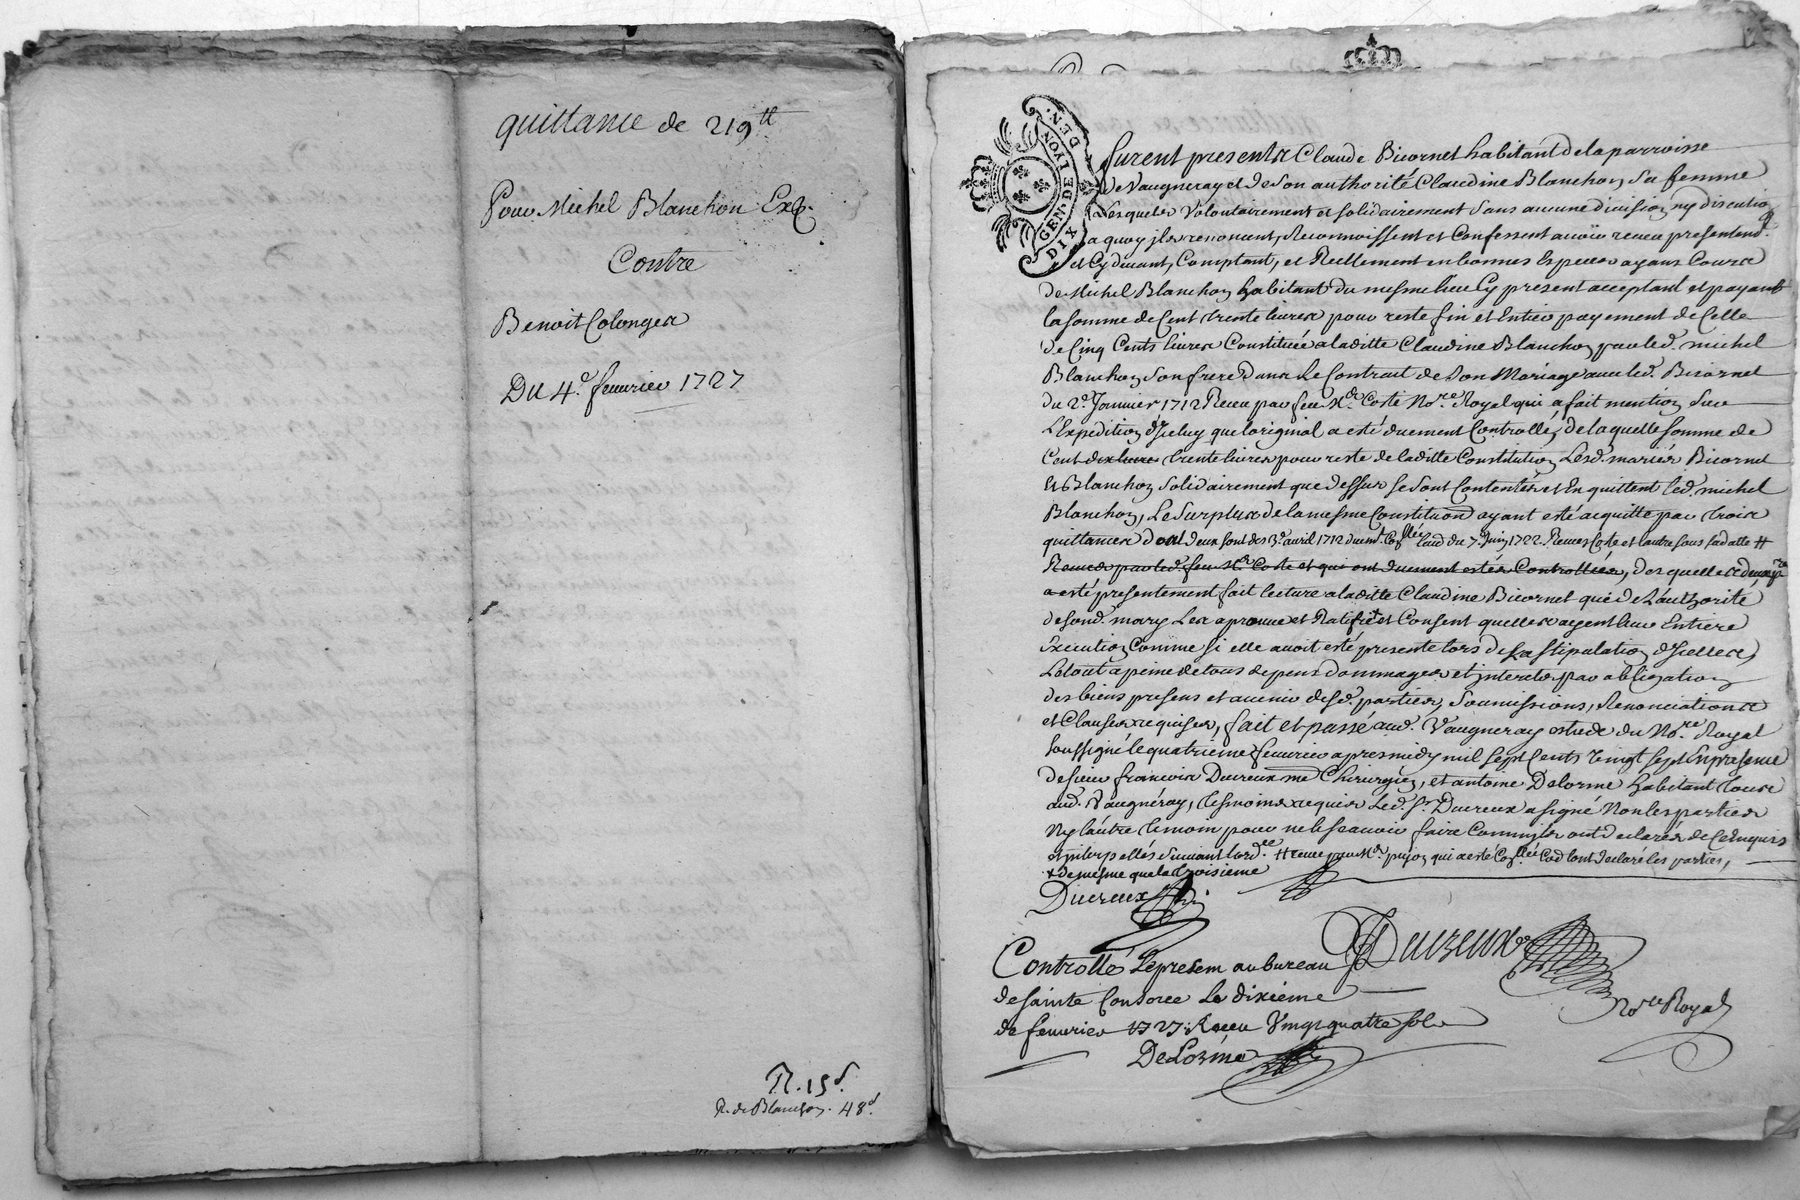 quittance de 219ᵗᵗ
Pour Michel Blanchon Exp.
Contre
Benoit Colonges
Du 4ᵉ. feuurier 1727
R. 15ˢ.
R. de Blanchon. 48ˢ.
GEN. DE LYON
DIX DEN.
furent presents Claude Bicornet habitant de la parroisse
de Vaugneray et de son authorité Claudine Blanchon sa femme
Lesquels Volontairement et solidairement sans aucune diuision ny discution
a quoy jls renoncent, Reconnoissent et Confessent auoir receu presentemt.
et Cy deuant, Comptant, et Réellement en bonnes Especes ayans Cours
de Michel Blanchon habitant du mesme lieu Cy present acceptant et payant
la somme de Cent trente liures pour reste fin et Entier payement de Celle
de Cinq Cents liures Constituée a laditte Claudine Blanchon par led. michel
Blanchon son frere dans Le Contract de son Mariage auec led. Bicornet
du 2ᵉ. Januier 1712 Receu par feu Mᵉ. Coste Noʳᵉ. Royal qui a fait mention sur
L'Expedition d'Jceluy que l'original a esté duement Controllé, de laquelle somme de
Cent dix liures trente liures pour reste de laditte Constitution Lesd. mariés Bicornet
et Blanchon solidairement que dessus se sont Contentés et En quittent led. michel
Blanchon, Le Surplus de la mesme Constitution ayant esté acquitté par trois
quittances dont deux sont des 3ᵉ. auril 1712 duemt. Coⁿˡˡᵉᵉ Laud. du 7ᵉ Juin 1722. Receues Coste et l'autre sous sa datte #
Receues par led. feu Mᵉ. Coste et qui ont duement estés Controllées, desquelles deux pʳᵉˢ
a esté presentement fait lecture a laditte Claudine Bicornet qui de L'authorité
de sond. mary Les aprouue et Ratifie + et Consent quelles ayent leur Entiere
Execution Comme si elle auoit esté presente lors de La stipulation d'Jcelles
Le tout a peine de tous depens dommages et jnterets par obligation
des biens presens et auenir desd. parties, Soumissions, Renonciations
et Clauses requises, fait et passé aud. Vaugneray estude du Noʳᵉ. Royal
soussigné le quatrieme feuurier apres midy mil sept Cents Vingt sept En presence
de sieur francois Ducreux me Chirurgien, et antoine Delorme habitant tous
aud. Vaugneray, tesmoins requis Led. Sʳ. Ducreux a signé Non les parties
Ny l'autre temoin pour ne le scauoir faire Comm'jls ont declarés de Ce Enquis
et jnterpellés suiuant lordᶜᵉ. # receue par Mᵉ. pujon qui a esté Coⁿˡˡᵉᵉ Cod'ont declaré les parties,
+ de mesme que la troisieme
Ducreux
Ducreux
Noʳᵉ Royal
Controllé Le presem au bureau
de sainte Consorce Le dixieme
de feuurier 1727. Receu Vingt quatre sols
DeLorme